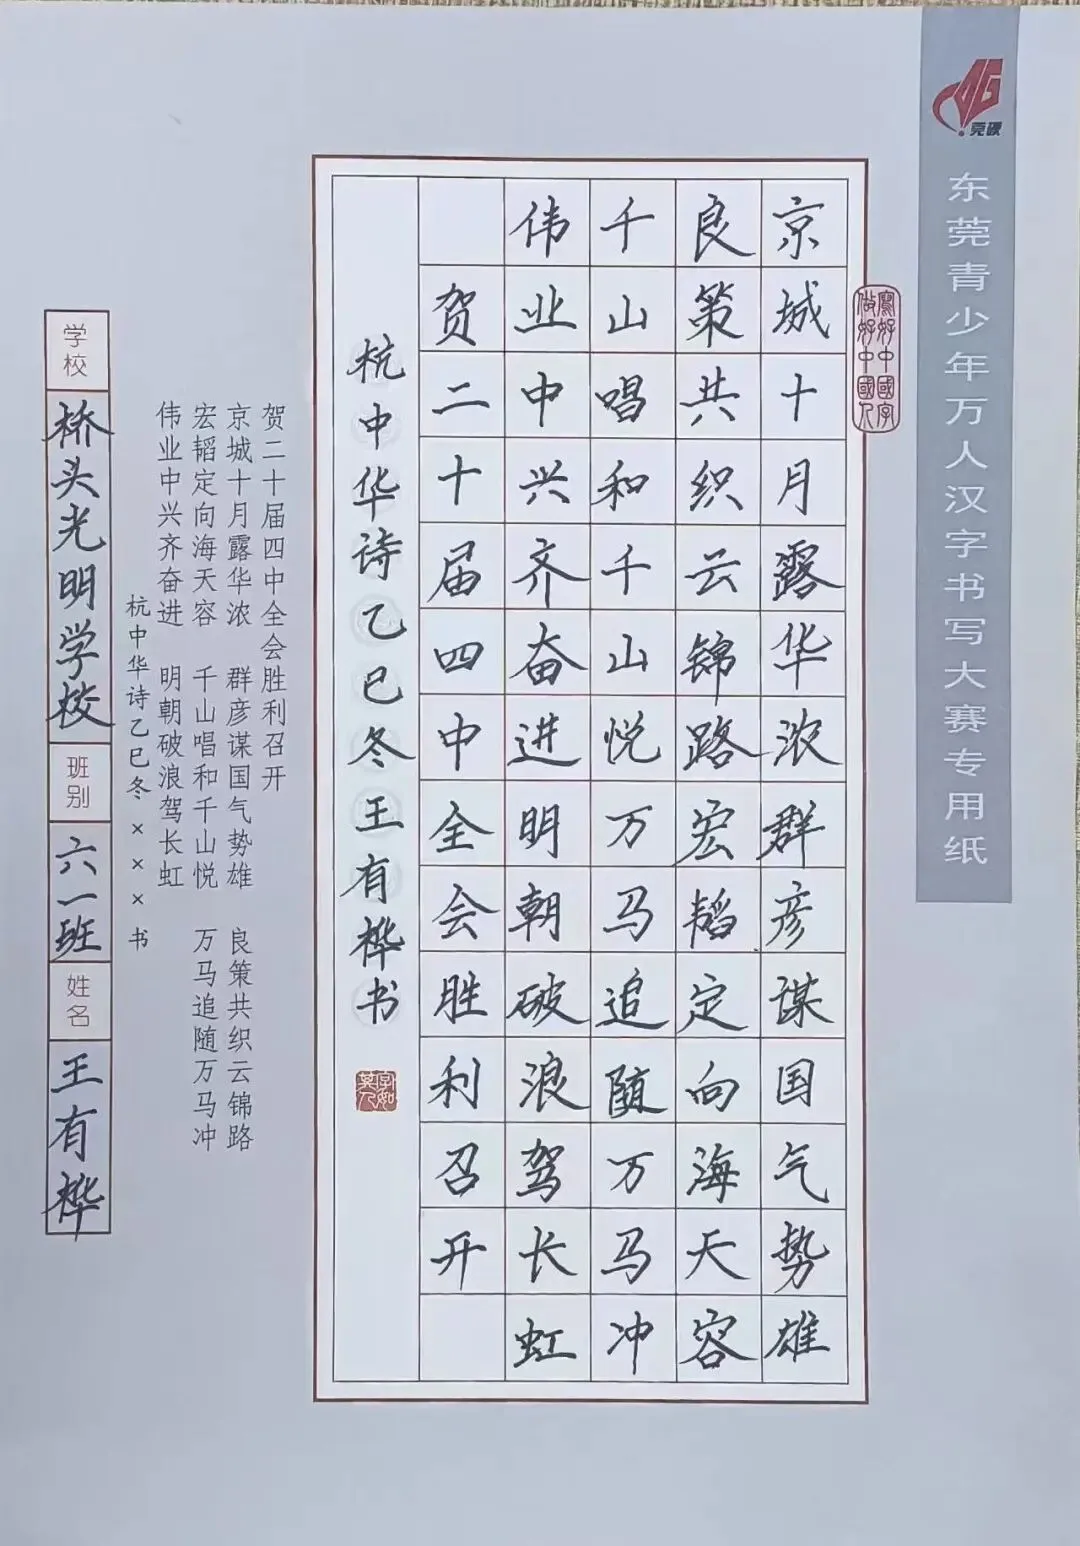 莞硬
东莞青少年万人汉字书写大赛专用纸
寫好中國字
做好中國人
京城十月露华浓群彦谋国气势雄
良策共织云锦路宏韬定向海天容
千山唱和千山悦万马追随万马冲
伟业中兴齐奋进明朝破浪驾长虹
贺二十届四中全会胜利召开
杭中华诗乙巳冬王有桦书
字如
其人
贺二十届四中全会胜利召开
京城十月露华浓 群彦谋国气势雄 良策共织云锦路
宏韬定向海天容 千山唱和千山悦 万马追随万马冲
伟业中兴齐奋进 明朝破浪驾长虹
杭中华诗乙巳冬×××书
学校
桥头光明学校
班别
六一班
姓名
王有桦